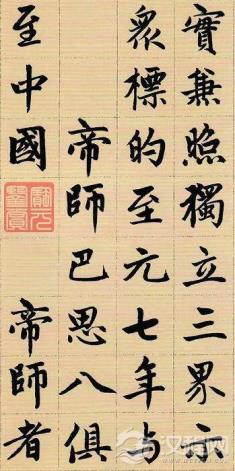 實兼照獨立三界示
衆標的至元七年与
帝師巴思八俱
至中國
帝師者
汉程网